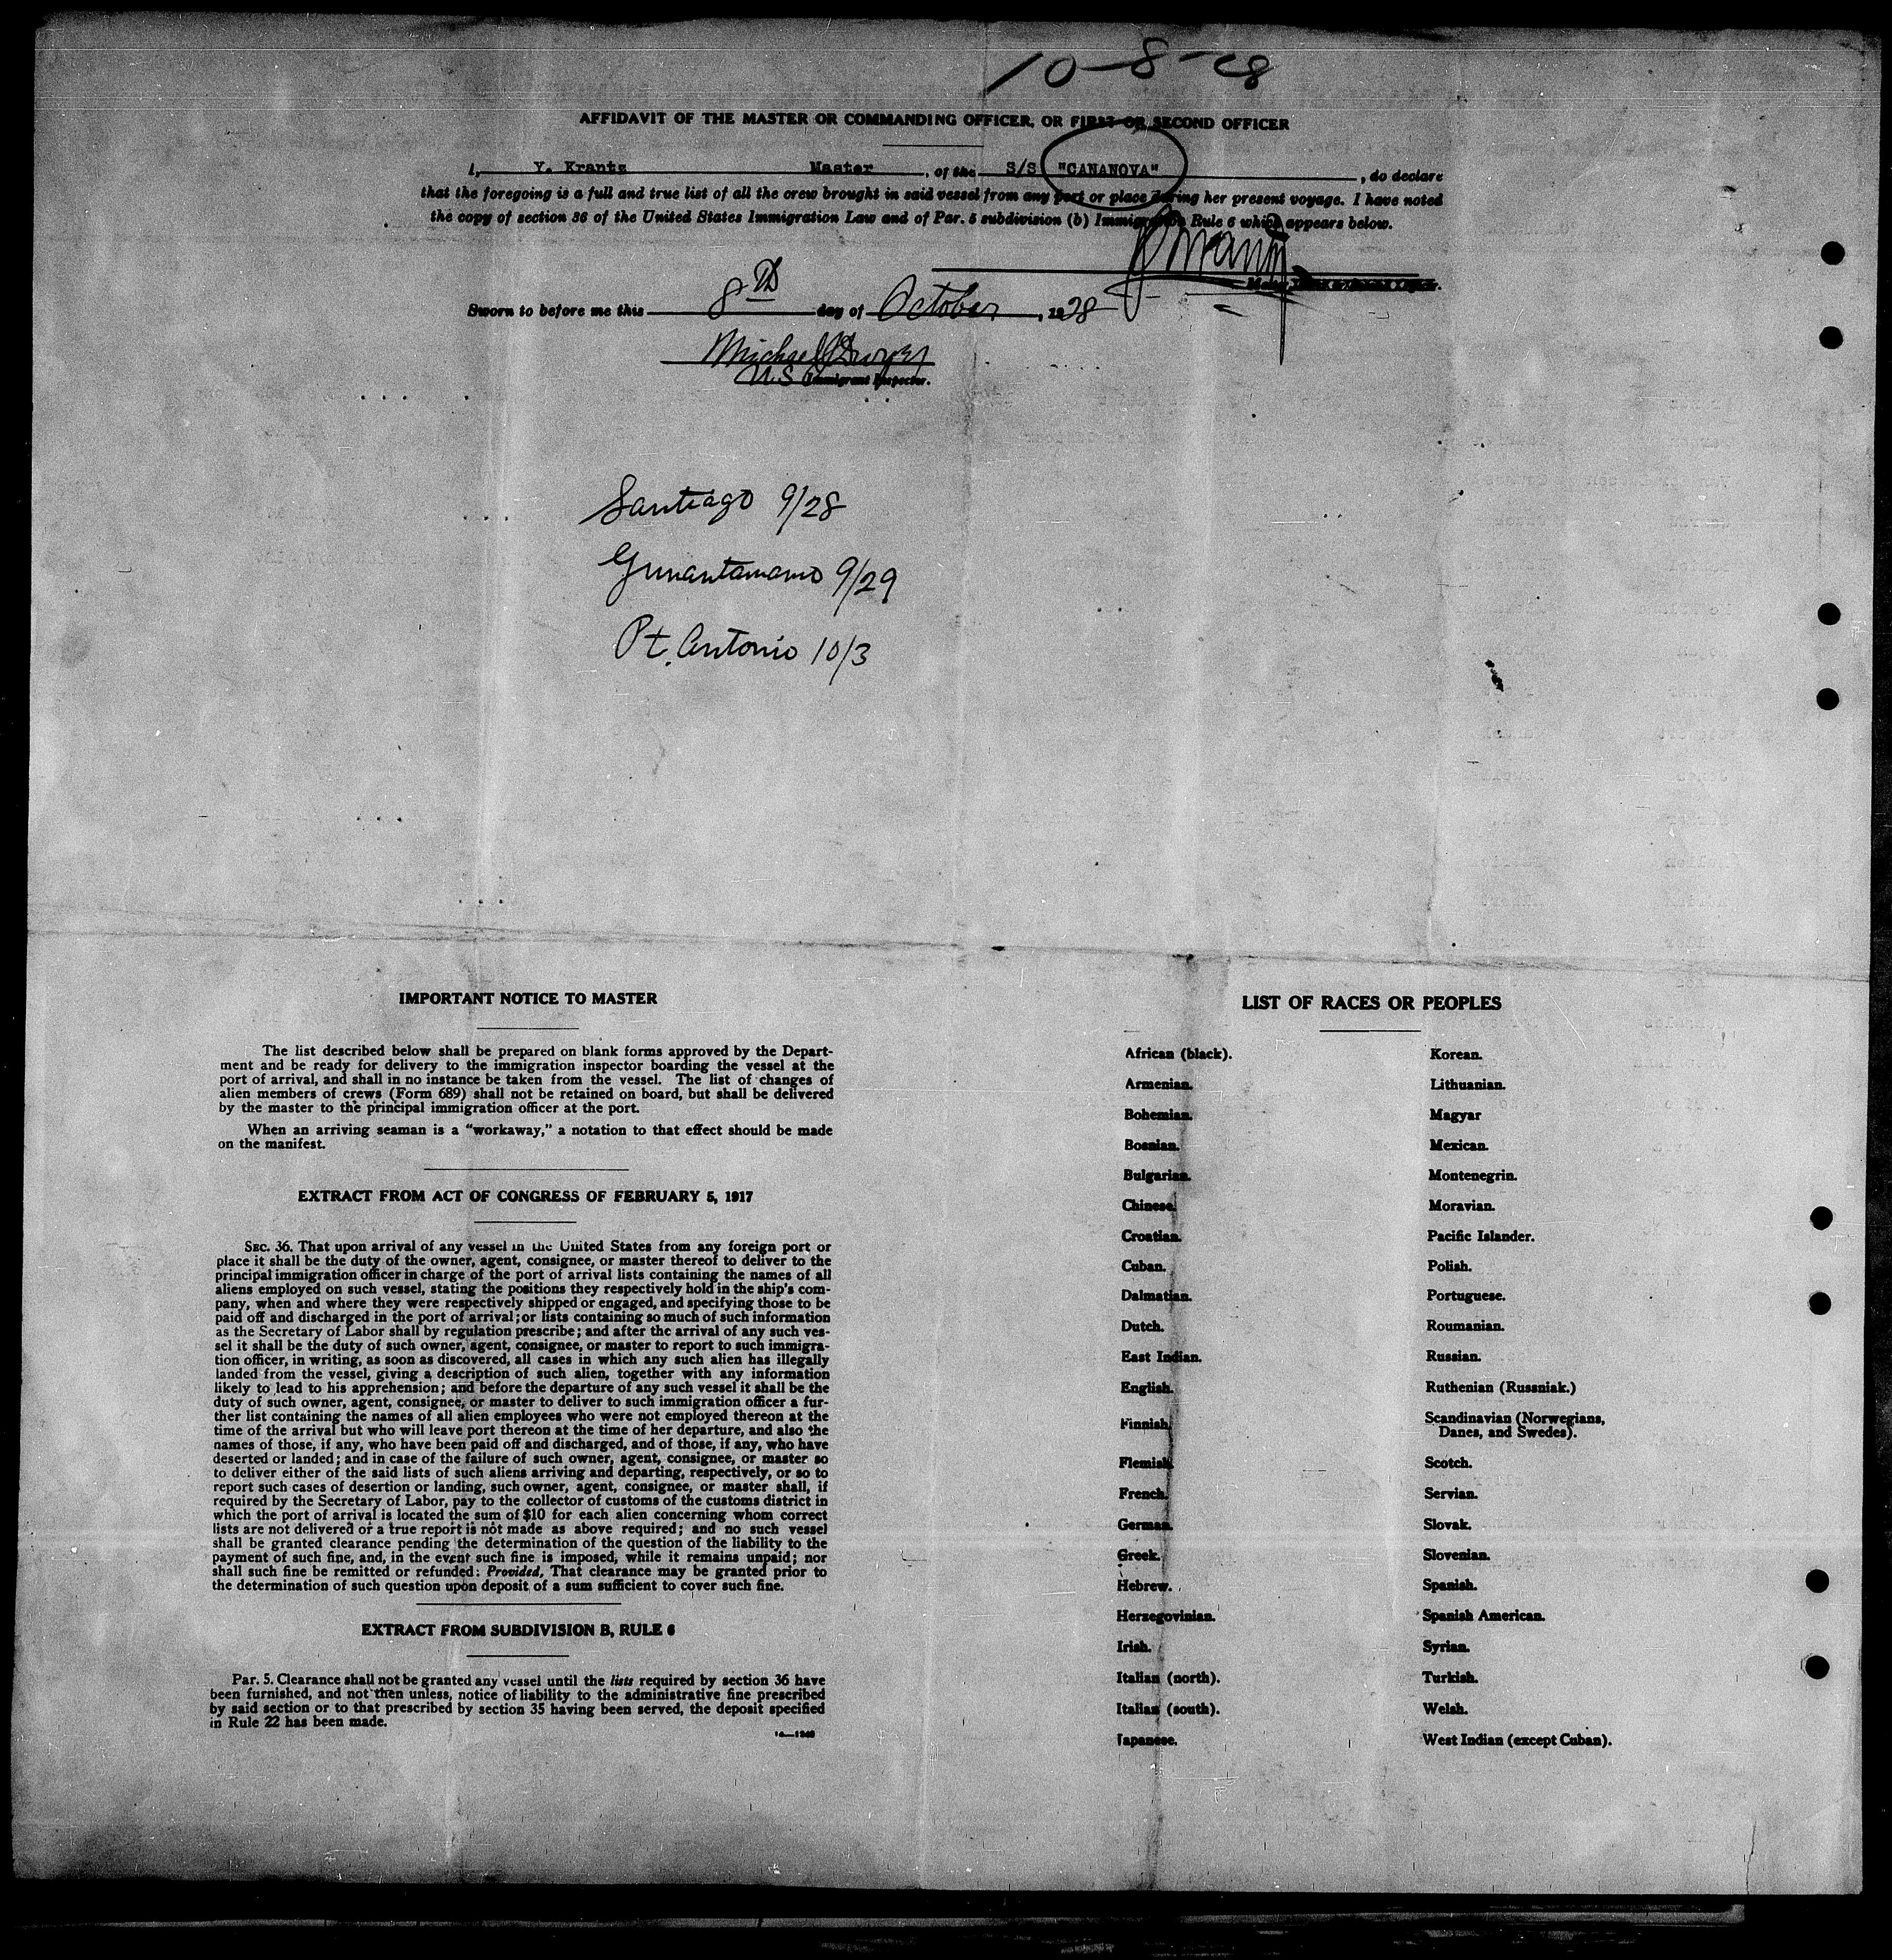 10-8-28
AFFIDAVIT OF THE MASTER OR COMMANDING OFFICER, OR FIRST OR SECOND OFFICER
I, Y. Krantz Master, of the S/S "CANANOVA", do declare
that the foregoing is a full and true list of all the crew brought in said vessel from any port or place during her present voyage. I have noted
the copy of section 36 of the United States Immigration Law and of Par. 5 subdivision (b) Immigration Rule 6 which appears below.
Sworn to before me this 8th day of October, 1928
Michael
U.S. Immigrant Inspector.
Santiago 9/28
Guuantamamo 9/29
Pt. Antonio 10/3
IMPORTANT NOTICE TO MASTER
The list described below shall be prepared on blank forms approved by the Depart-
ment and be ready for delivery to the immigration inspector boarding the vessel at the
port of arrival, and shall in no instance be taken from the vessel. The list of changes of
alien members of crews (Form 689) shall not be retained on board, but shall be delivered
by the master to the principal immigration officer at the port.
When an arriving seaman is a "workaway," a notation to that effect should be made
on the manifest.
EXTRACT FROM ACT OF CONGRESS OF FEBRUARY 5, 1917
SEC. 36. That upon arrival of any vessel in the United States from any foreign port or
place it shall be the duty of the owner, agent, consignee, or master thereof to deliver to the
principal immigration officer in charge of the port of arrival lists containing the names of all
aliens employed on such vessel, stating the positions they respectively hold in the ship's com-
pany, when and where they were respectively shipped or engaged, and specifying those to be
paid off and discharged in the port of arrival; or lists containing so much of such information
as the Secretary of Labor shall by regulation prescribe; and after the arrival of any such ves-
sel it shall be the duty of such owner, agent, consignee, or master to report to such immigra-
tion officer, in writing, as soon as discovered, all cases in which any such alien has illegally
landed from the vessel, giving a description of such alien, together with any information
likely to lead to his apprehension; and before the departure of any such vessel it shall be the
duty of such owner, agent, consignee, or master to deliver to such immigration officer a fur-
ther list containing the names of all alien employees who were not employed thereon at the
time of the arrival but who will leave port thereon at the time of her departure, and also the
names of those, if any, who have been paid off and discharged, and of those, if any, who have
deserted or landed; and in case of the failure of such owner, agent, consignee, or master so
to deliver either of the said lists of such aliens arriving and departing, respectively, or so to
report such cases of desertion or landing, such owner, agent, consignee, or master shall, if
required by the Secretary of Labor, pay to the collector of customs of the customs district in
which the port of arrival is located the sum of $10 for each alien concerning whom correct
lists are not delivered or a true report is not made as above required; and no such vessel
shall be granted clearance pending the determination of the question of the liability to the
payment of such fine, and, in the event such fine is imposed, while it remains unpaid; nor
shall such fine be remitted or refunded: Provided, That clearance may be granted prior to
the determination of such question upon deposit of a sum sufficient to cover such fine.
EXTRACT FROM SUBDIVISION B, RULE 6
Par. 5. Clearance shall not be granted any vessel until the lists required by section 36 have
been furnished, and not then unless, notice of liability to the administrative fine prescribed
by said section or to that prescribed by section 35 having been served, the deposit specified
in Rule 22 has been made.
LIST OF RACES OR PEOPLES
African (black).
Armenian.
Bohemian.
Bosnian.
Bulgarian.
Chinese.
Croatian.
Cuban.
Dalmatian.
Dutch.
East Indian.
English.
Finnish.
Flemish.
French.
German.
Greek.
Hebrew.
Herzegovinian.
Irish.
Italian (north).
Italian (south).
Japanese.
Korean.
Lithuanian.
Magyar
Mexican.
Montenegrin.
Moravian.
Pacific Islander.
Polish.
Portuguese.
Roumanian.
Russian.
Ruthenian (Russniak.)
Scandinavian (Norwegians,
Danes, and Swedes).
Scotch.
Servian.
Slovak.
Slovenian.
Spanish.
Spanish American.
Syrian.
Turkish.
Welsh.
West Indian (except Cuban).